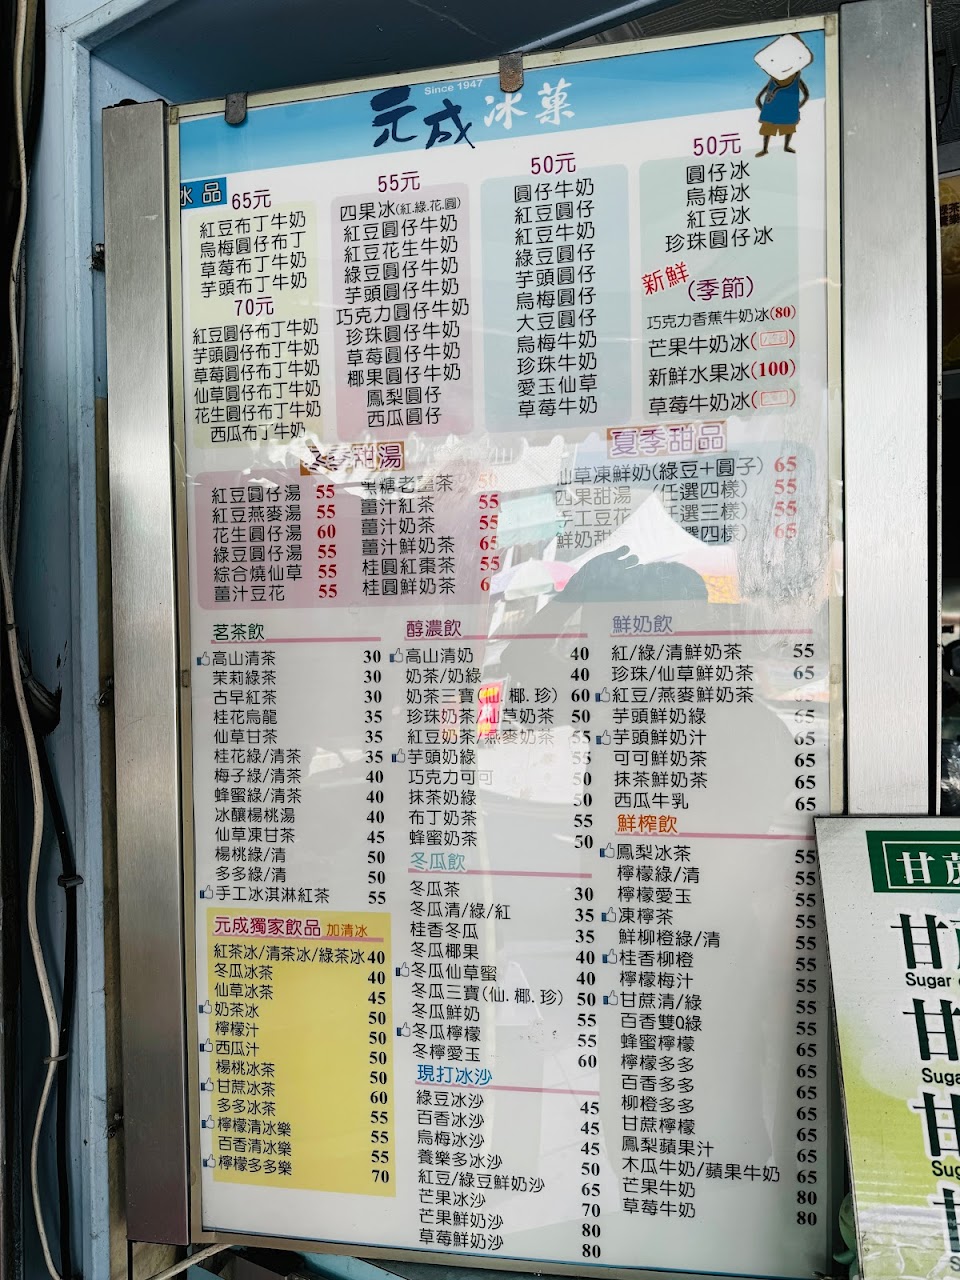 Since 1947
元成 冰菓
冰品
65元
紅豆布丁牛奶
烏梅圓仔布丁
草莓布丁牛奶
芋頭布丁牛奶
70元
紅豆圓仔布丁牛奶
芋頭圓仔布丁牛奶
草莓圓仔布丁牛奶
仙草圓仔布丁牛奶
花生圓仔布丁牛奶
西瓜布丁牛奶
55元
四果冰(紅.綠.花.圓)
紅豆圓仔牛奶
紅豆花生牛奶
綠豆圓仔牛奶
芋頭圓仔牛奶
巧克力圓仔牛奶
珍珠圓仔牛奶
草莓圓仔牛奶
椰果圓仔牛奶
鳳梨圓仔
西瓜圓仔
50元
圓仔牛奶
紅豆圓仔
紅豆牛奶
綠豆圓仔
芋頭圓仔
烏梅圓仔
大豆圓仔
烏梅牛奶
珍珠牛奶
愛玉仙草
草莓牛奶
50元
圓仔冰
烏梅冰
紅豆冰
珍珠圓仔冰
新鮮(季節)
巧克力香蕉牛奶冰(80)
芒果牛奶冰
新鮮水果冰(100)
草莓牛奶冰
季甜湯
紅豆圓仔湯 55
紅豆燕麥湯 55
花生圓仔湯 60
綠豆圓仔湯 55
綜合燒仙草 55
薑汁豆花 55
黑糖老薑茶 50
薑汁紅茶 55
薑汁奶茶 55
薑汁鮮奶茶 65
桂圓紅棗茶 55
桂圓鮮奶茶 6
夏季甜品
仙草凍鮮奶(綠豆+圓子) 65
四果甜湯 (任選四樣) 55
手工豆花 任選三樣) 55
鮮奶甜 選四樣) 65
茗茶飲
高山清茶 30
茉莉綠茶 30
古早紅茶 30
桂花烏龍 35
仙草甘茶 35
桂花綠/清茶 35
梅子綠/清茶 40
蜂蜜綠/清茶 40
冰釀楊桃湯 40
仙草凍甘茶 45
楊桃綠/清 50
多多綠/清 50
手工冰淇淋紅茶 55
元成獨家飲品 加清冰
紅茶冰/清茶冰/綠茶冰 40
冬瓜冰茶 40
仙草冰茶 45
奶茶冰 50
檸檬汁 50
西瓜汁 50
楊桃冰茶 50
甘蔗冰茶 60
多多冰茶 55
檸檬清冰樂 55
百香清冰樂 55
檸檬多多樂 70
醇濃飲
高山清奶 40
奶茶/奶綠 40
奶茶三寶(仙.椰.珍) 60
珍珠奶茶/仙草奶茶 50
紅豆奶茶/燕麥奶茶 55
芋頭奶綠 55
巧克力可可 50
抹茶奶綠 50
布丁奶茶 55
蜂蜜奶茶 50
冬瓜飲
冬瓜茶 30
冬瓜清/綠/紅 35
桂香冬瓜 35
冬瓜椰果 40
冬瓜仙草蜜 40
冬瓜三寶(仙.椰.珍) 50
冬瓜鮮奶 55
冬瓜檸檬 55
冬檸愛玉 60
現打冰沙
綠豆冰沙 45
百香冰沙 45
烏梅冰沙 45
養樂多冰沙 50
紅豆/綠豆鮮奶沙 65
芒果冰沙 70
芒果鮮奶沙 80
草莓鮮奶沙 80
鮮奶飲
紅/綠/清鮮奶茶 55
珍珠/仙草鮮奶茶 65
紅豆/燕麥鮮奶茶 65
芋頭鮮奶綠 65
芋頭鮮奶汁 65
可可鮮奶茶 65
抹茶鮮奶茶 65
西瓜牛乳 65
鮮榨飲
鳳梨冰茶 55
檸檬綠/清 55
檸檬愛玉 55
凍檸茶 55
鮮柳橙綠/清 55
桂香柳橙 55
檸檬梅汁 55
甘蔗清/綠 55
百香雙Q綠 55
蜂蜜檸檬 65
檸檬多多 65
百香多多 65
柳橙多多 65
甘蔗檸檬 65
鳳梨蘋果汁 65
木瓜牛奶/蘋果牛奶 65
芒果牛奶 80
草莓牛奶 80
甘蔗
甘蔗
Sugar
甘
Suga
甘
Sug
甘